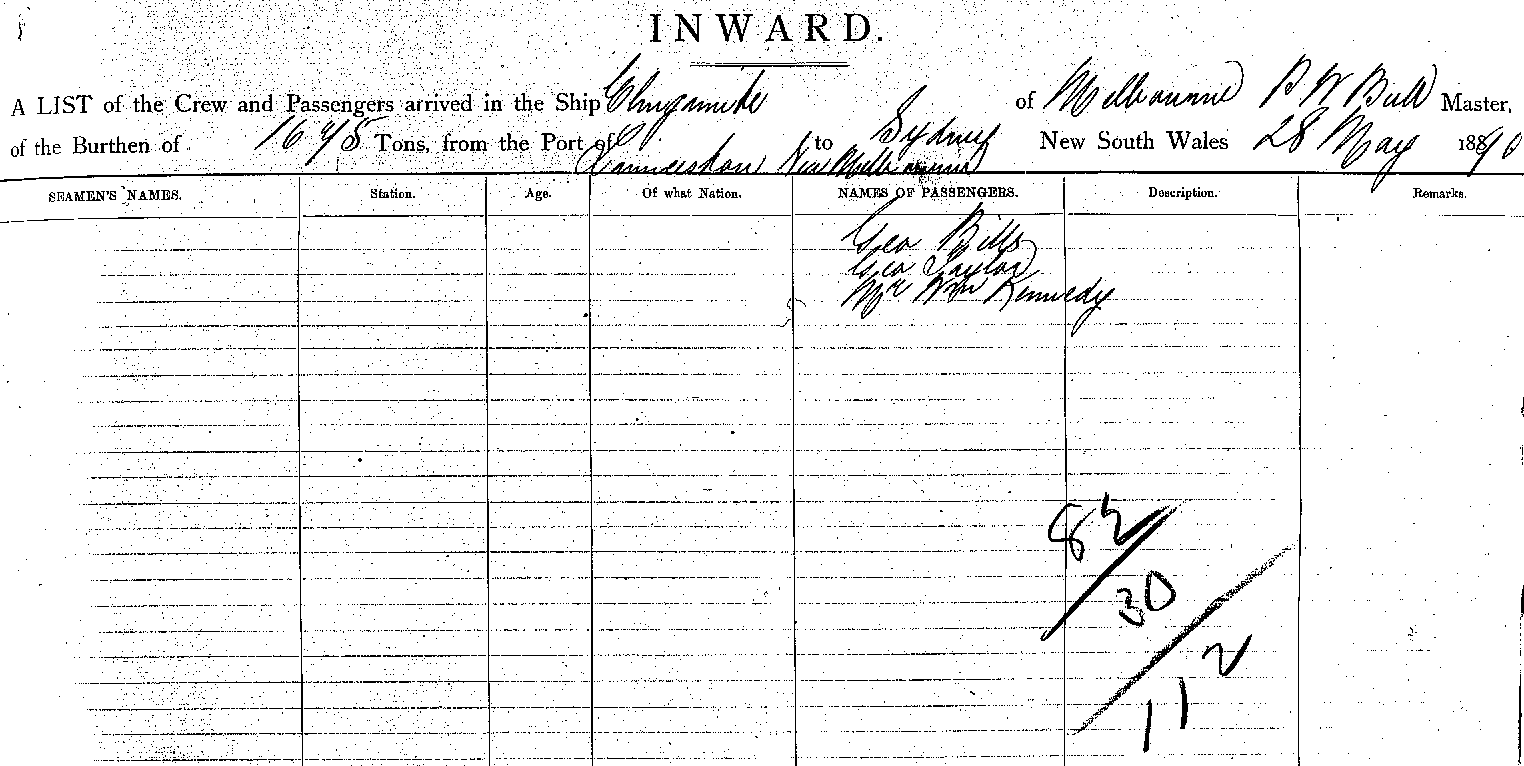 INWARD.
A LIST of the Crew and Passengers arrived in the Ship Elingamite of Melbourne B W Bull Master,
of the Burthen of 1675 Tons, from the Port of Launceston to Sydney New South Wales 28 May 1890
Melbourne
SEAMEN'S NAMES. Station. Age. Of what Nation. NAMES OF PASSENGERS. Description. Remarks.
Geo Bills
Geo Taylor
Mr Wm Kennedy
82
30
112